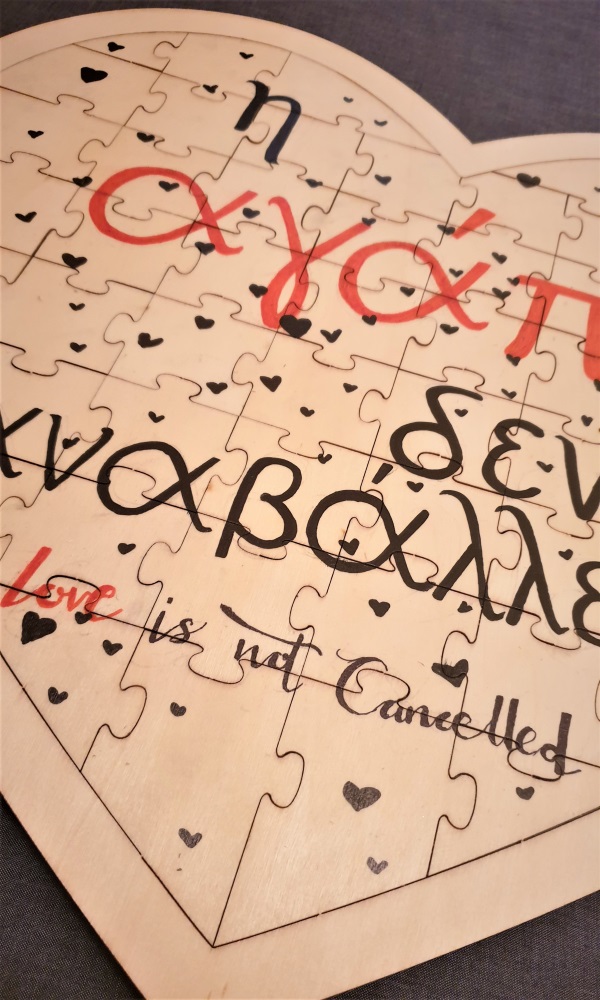 η
αγάπ
δεν
αναβάλλε
Love is not Cancelled